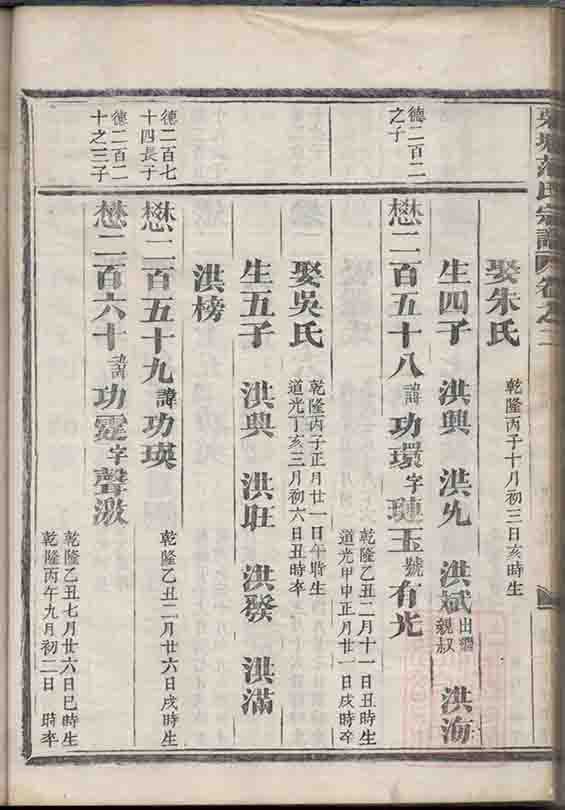 范氏宗譜 卷之二
娶朱氏 乾隆丙子十月初三日亥時生
生四子 洪興 洪先 洪斌 出繼親叔 洪海
德二百二之子
懋二百五十八 諱功環字璉玉號有光 乾隆乙丑二月十一日丑時生
道光甲申正月廿一日戌時卒
娶吳氏 乾隆丙子正月廿一日午時生
道光丁亥三月初六日丑時卒
生五子 洪興 洪旺 洪發 洪滿
洪榜
德二百七十四長子
懋二百五十九諱功瑛 乾隆乙丑二月廿六日戌時生
德二百二十之三子
懋二百六十諱功霆字聲 乾隆乙丑七月廿六日巳時生
乾隆丙午九月初二日 時卒